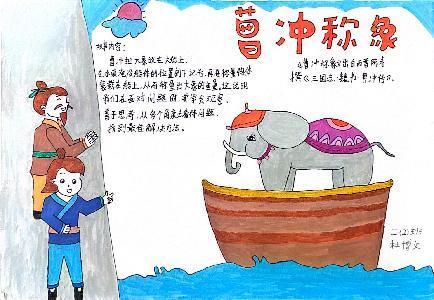 曹冲称象
《曹冲称象》出自西晋陈寿
撰《三国志·魏书·曹冲传》。
故事内容：
曹冲把大象放在大船上，
在水面所达船体的位置刻下记号，再用称量物体
装载在船上，从而称出大象的重量。这说明
我们在面对问题时，要学会观察
善于思考，从多个角度去看待问题，
找到最佳解决方法。
二(2)班
杜博文